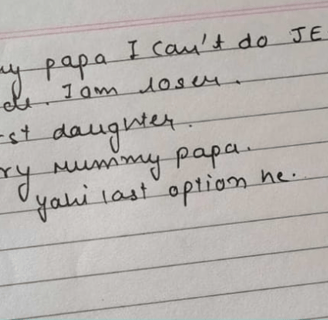 my papa I can't do JE
I am loser.
st daughter.
ry mummy papa.
yahi last option he.